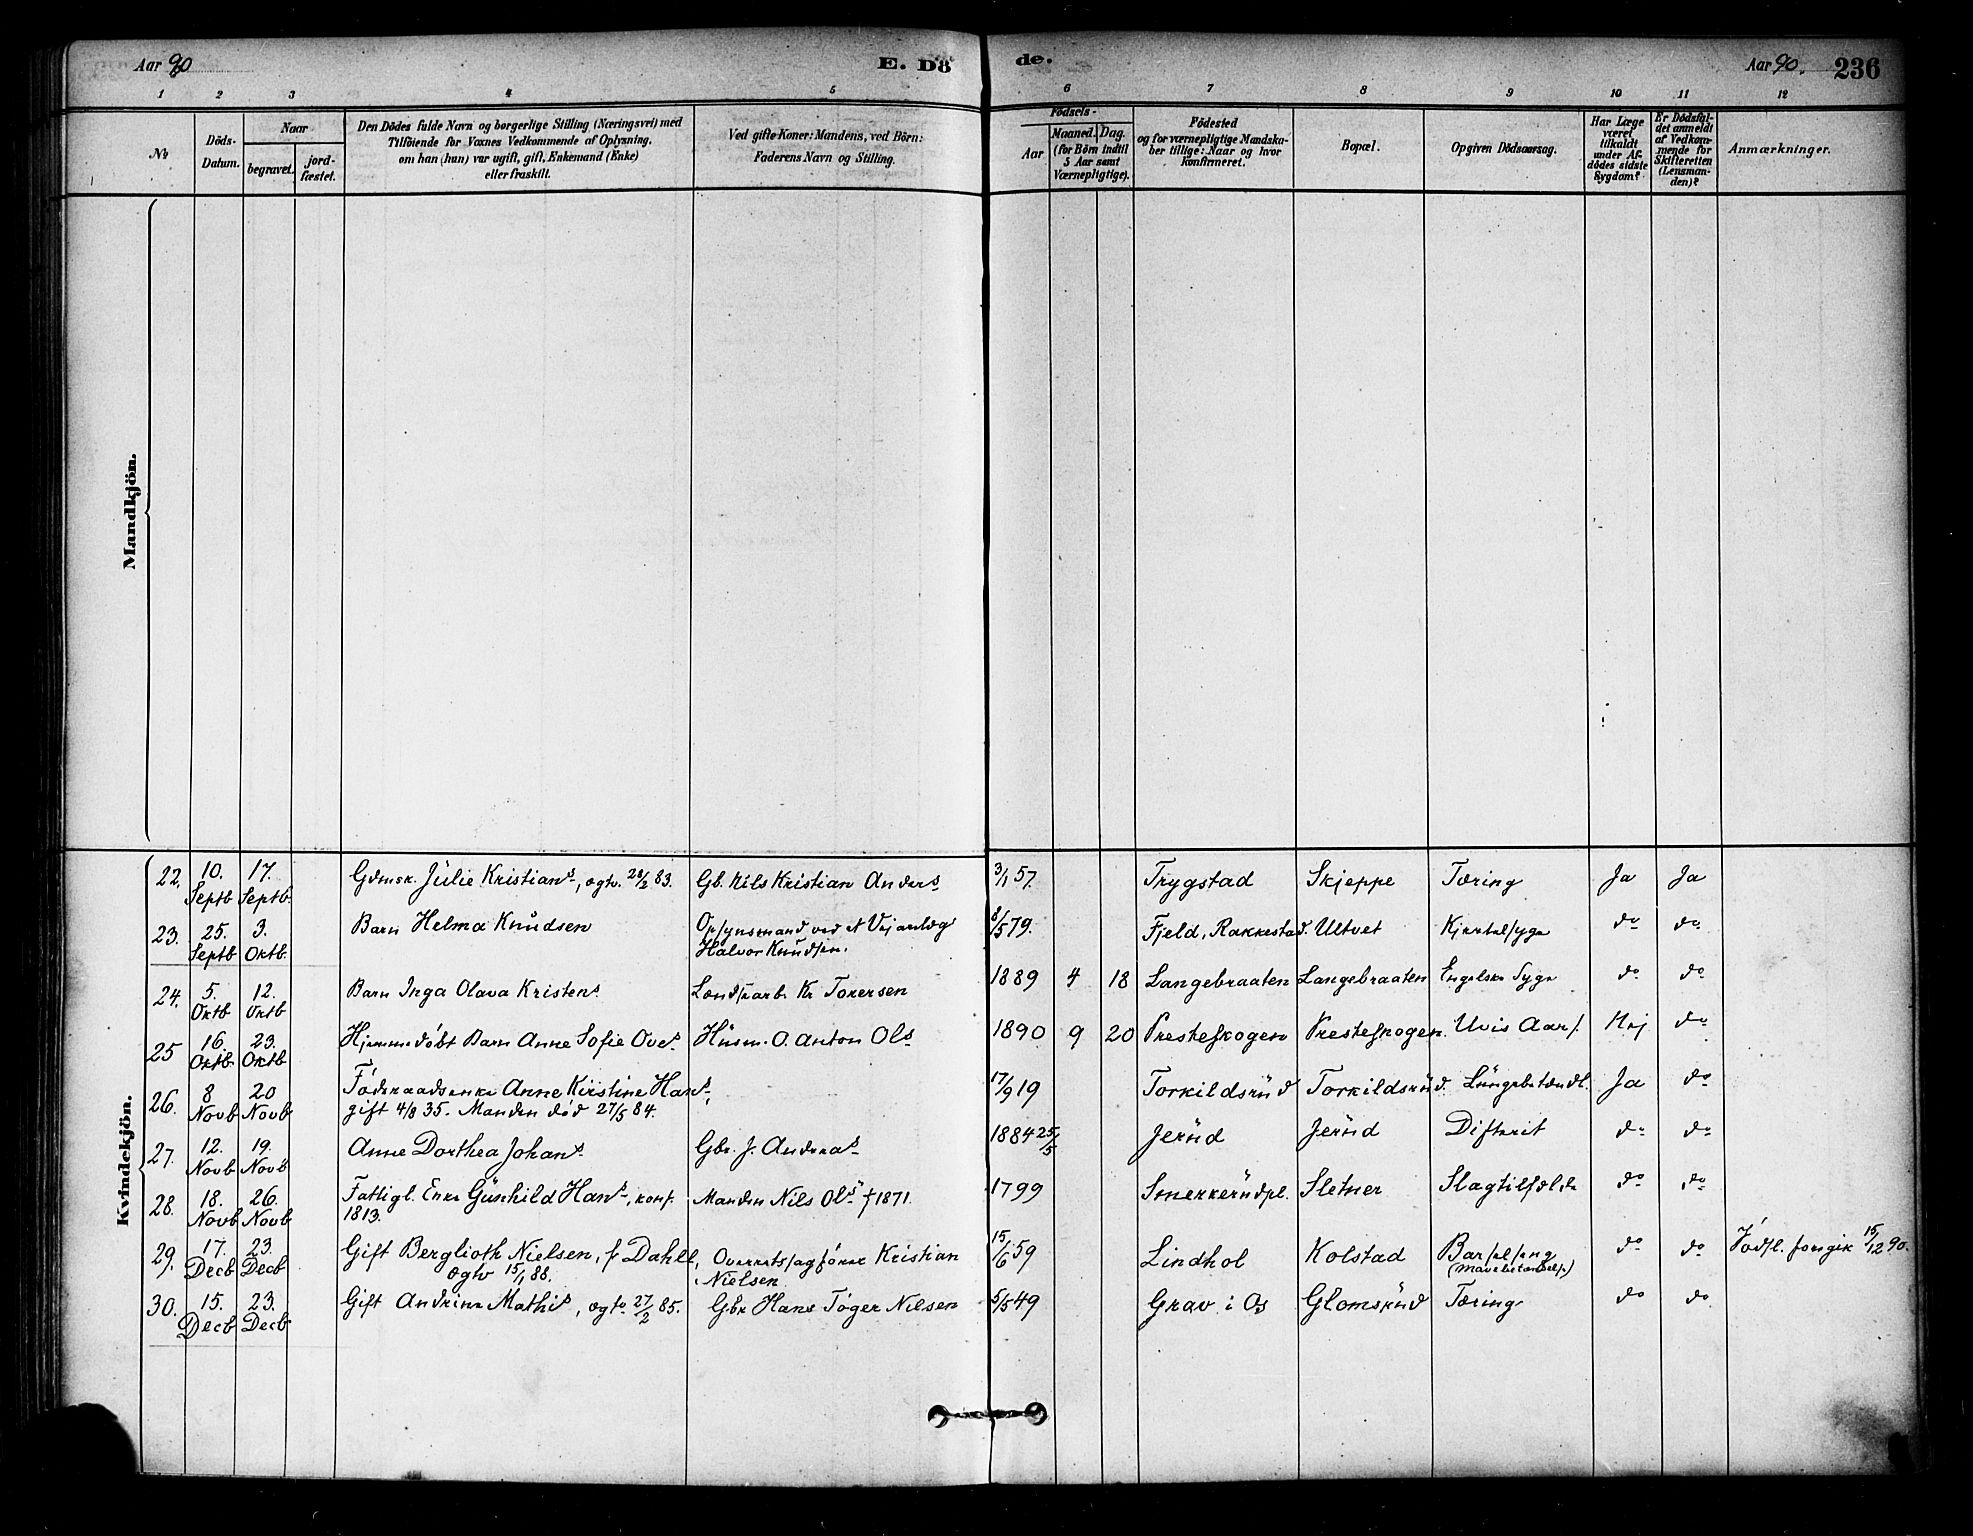 Aar 90
E. Dö
de.
Aar 90. 236
1 2 3 4 5 6 7 8 9 10 11 12
No
Döds-
Datum.
Naar
begravet.
jord-
fæstet.
Den Dödes fulde Navn og borgerlige Stilling (Næringsvei) med
Tilföiende for Voxnes Vedkommende af Oplysning,
om han (hun) var ugift, gift, Enkemand (Enke)
eller fraskilt.
Ved gifte Koner: Mandens, ved Börn:
Faderens Navn og Stilling.
Födsels-
Aar
Maaned. Dag.
(for Börn indtil
5 Aar samt
Værnepligtige).
Födested
og for værnepligtige Mandska-
ber tillige: Naar og hvor
konfirmeret.
Bopæl.
Opgiven Dödsaarsag.
Har Læge
været
tilkaldt
under Af-
dödes sidste
Sygdom?
Er Dödsfal-
det anmeldt
af Vedkom-
mende for
Skifteretten
(Lensman-
den)?
Anmærkninger.
Mandkjön.
Kvindekjön.
22. 10. Septb 17. Septb. Gdmsk. Julie Kristians, ogtv. 28/2 83. Gb. Nils Kristian Anders 3/1 57. Trygstad Skjeppe Tæring Ja Ja
23. 25. Septb 3. Oktb. Barn Helma Knudsen Opsynsmand ved et Vejanlæg
Halvor Knudsen. 8/5 79. Fjeld, Rakkestad. Ultvet Kjertelsyge do do
24. 5. Oktb 12. Oktb Barn Inga Olava Kristens. Landharb Kr Torersen 1889 4 18 Langebraaten Langebraaten Engelske Syge do do
25 16. Oktb. 23. Oktb Hjemmedöbt Barn Anne Sofie Oves Husm. O. Anton Ols 1890 9 20 Presteskogen Presteskogen. Uvis Aars. Nej do
26. 8 Novb 20 Novb Föderaadsenke Anne Kirstine Hans,
gift 4/8 35. Manden död 27/5 84. 17/9 19 Torkildsrud Torkildsrud. Lungebetændl. Ja do
27. 12. Novb 19. Novb Anne Dorthea Johans. Gbr. J. Andreas 1884 25/5 Jerud Jerud Difterit do do
28. 18. Novb 26. Novb Fattigl. Enke Gunhild Hans, konf.
1813. Manden Nils Ols † 1871. 1799 Smerkerudpl. Sletner Slagtilfælde do do
29. 17. Decb 23. Decb Gift Berglioth Nielsen, f Dahll,
ogtv 15/1 88. Overretssagförer Kristian
Nielsen 15/6 59 Lindhol Kolstad Barselseng
(Mavebetændels) do do Jödsf. foregik 15/12 90.
30. 15. Decb 23. Decb Gift Andrine Mathis, ogtv 27/2 85. Gbr Hans Töger Nilsen 5/5 49 Grav i Os Glomsrud Tæring do do